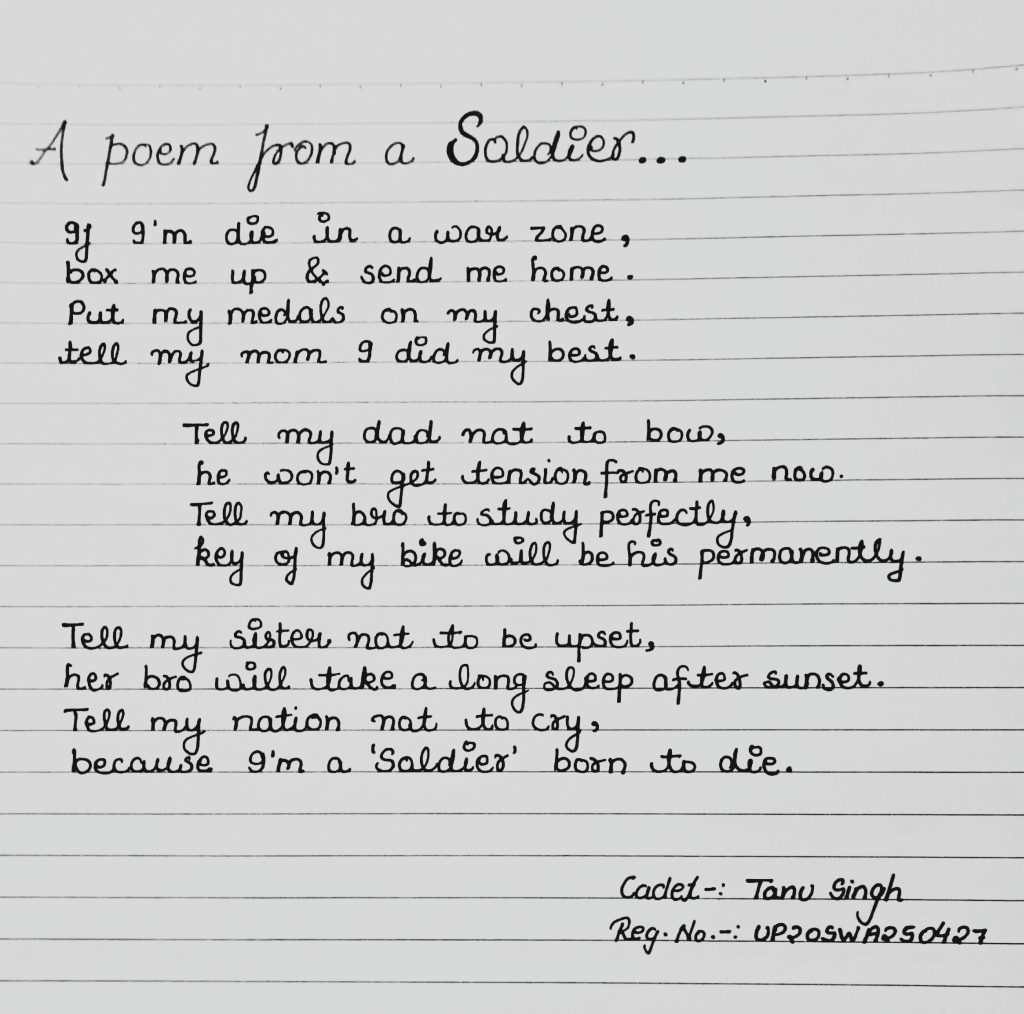 A poem from a Soldier...
If I'm die in a war zone,
box me up & send me home.
Put my medals on my chest,
tell my mom I did my best.
Tell my dad not to bow,
he won't get tension from me now.
Tell my bro to study perfectly,
key of my bike will be his permanently.
Tell my sister not to be upset,
her bro will take a long sleep after sunset.
Tell my nation not to cry,
because I'm a 'Soldier' born to die.
Cadet-: Tanu Singh
Reg. No.-: UP20SWA250427